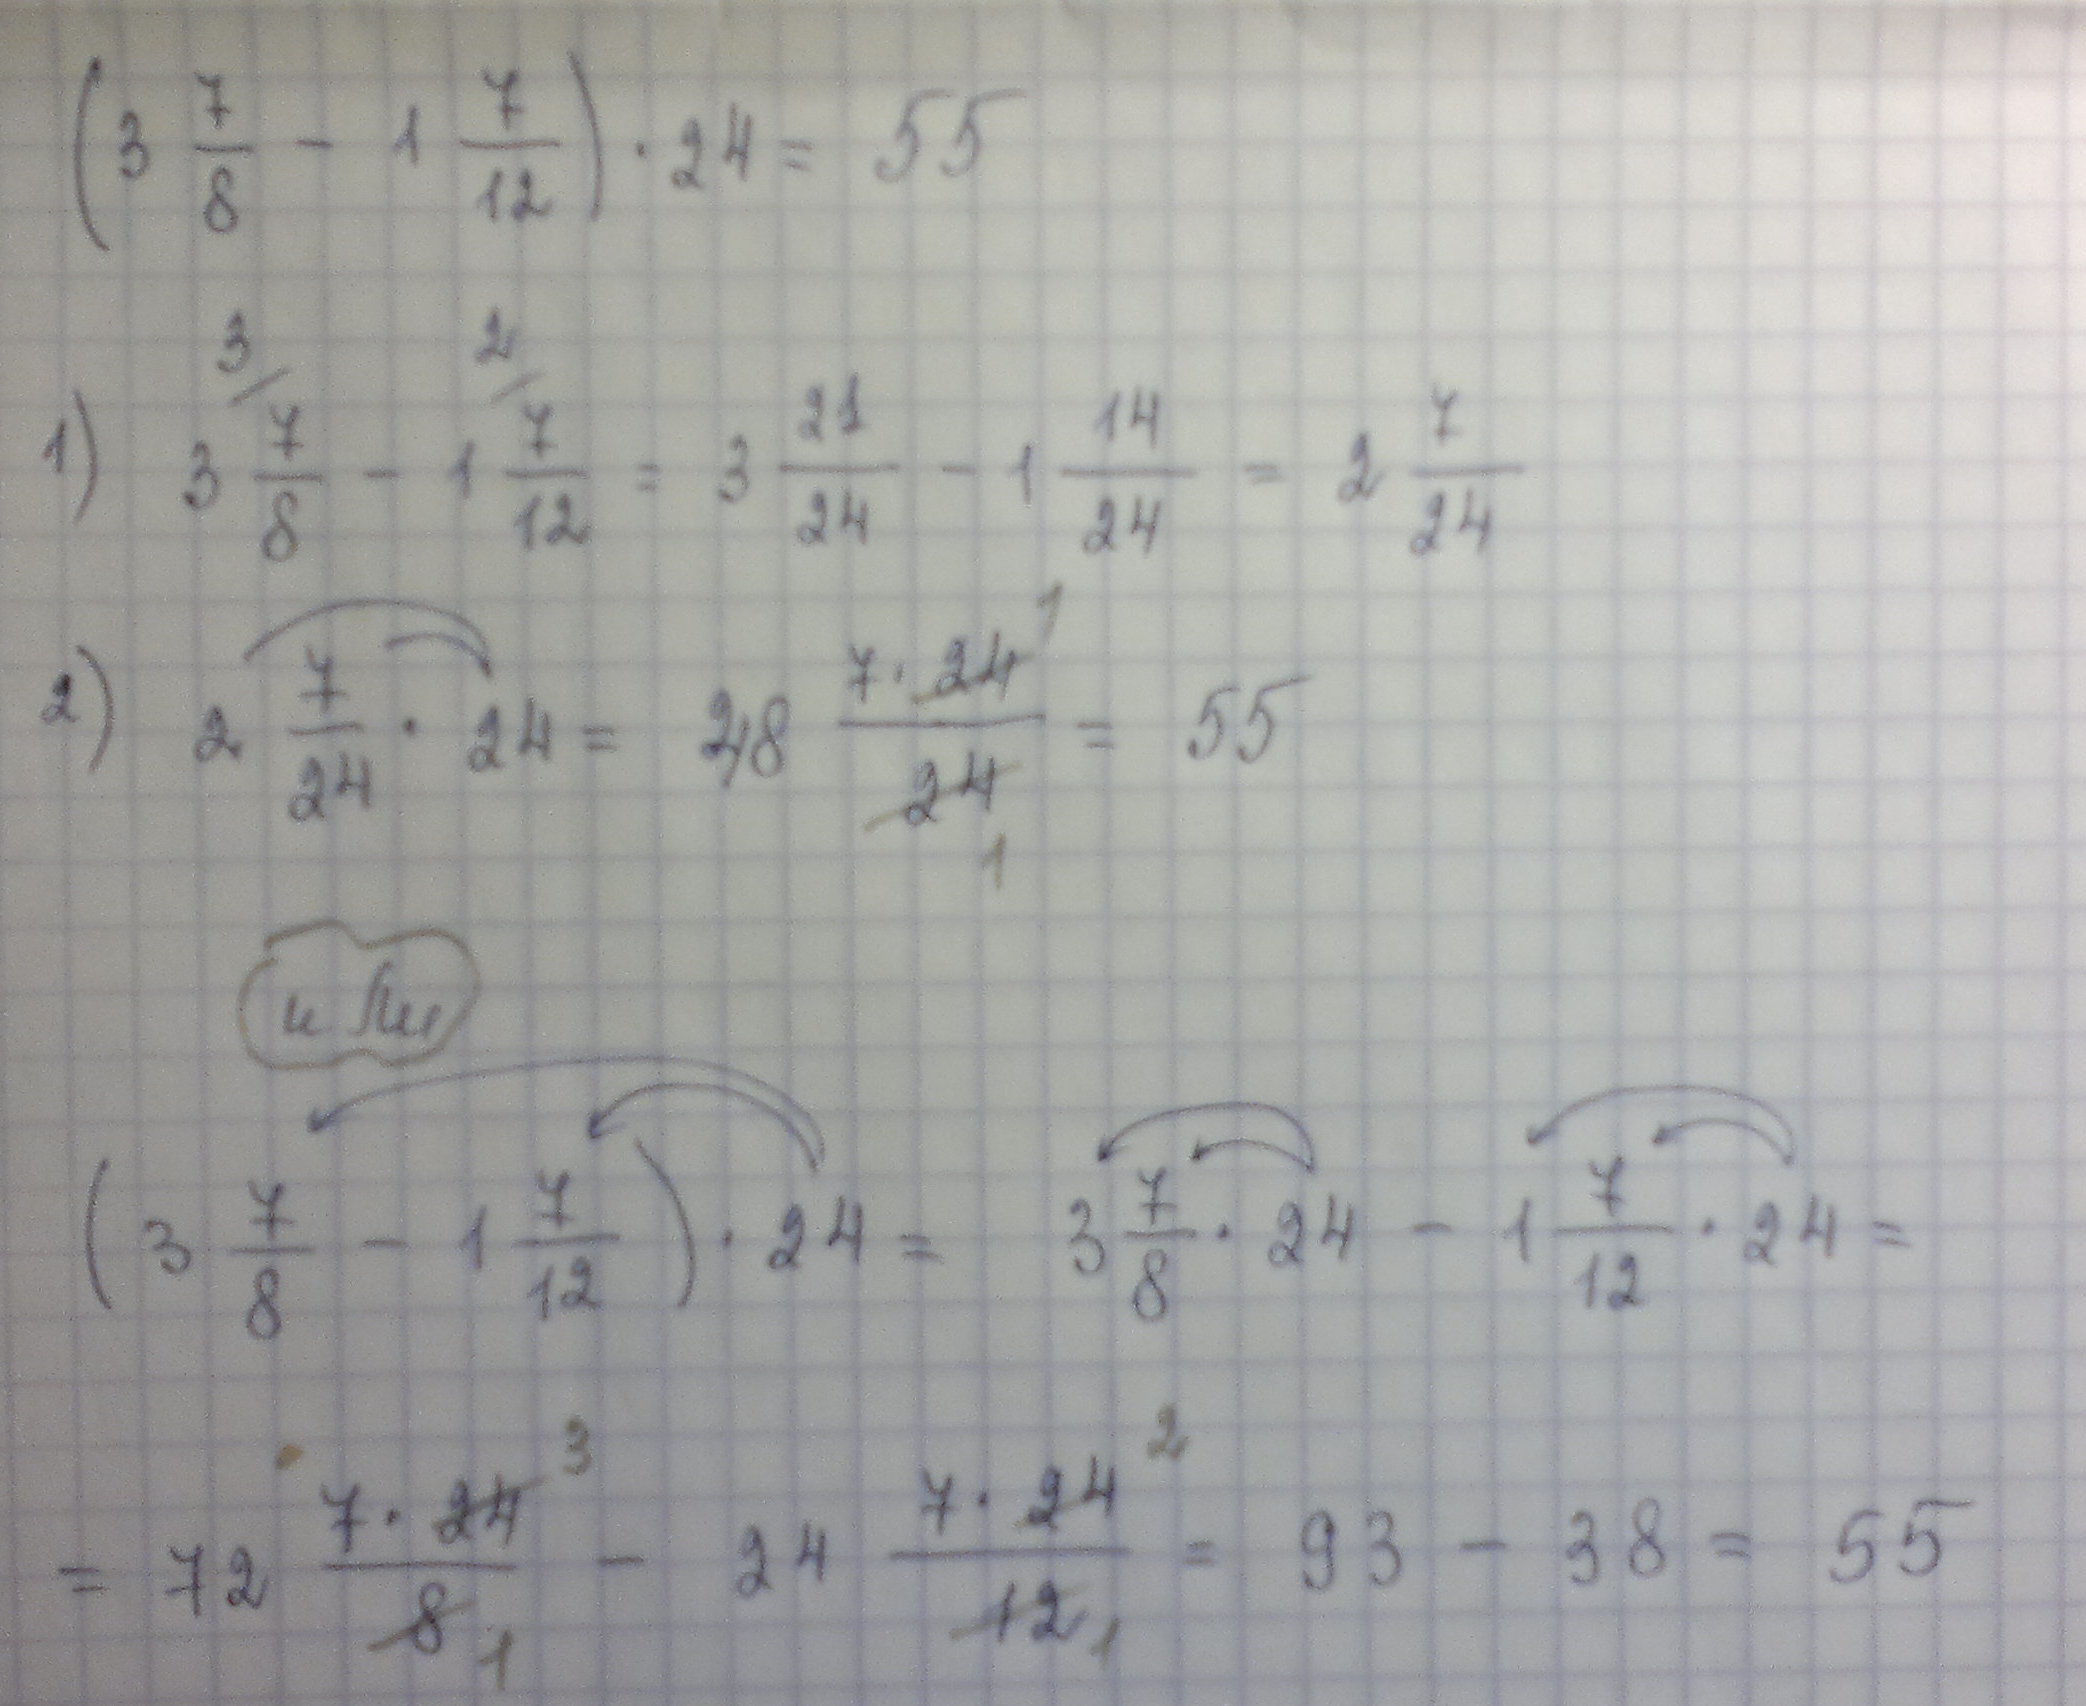 (3 7/8 - 1 7/12) · 24 = 55
1) 3 7/8 (3/) - 1 7/12 (2/) = 3 21/24 - 1 14/24 = 2 7/24
2) 2 7/24 · 24 = 48 7·24/24 (1, 1) = 55
или
(3 7/8 - 1 7/12) · 24 = 3 7/8 · 24 - 1 7/12 · 24 =
= 72 7·24/8 (3, 1) - 24 7·24/12 (2, 1) = 93 - 38 = 55